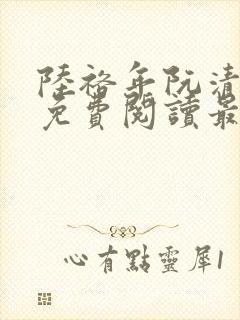 陸裕年阮清
免費閱讀最
心有點靈犀1